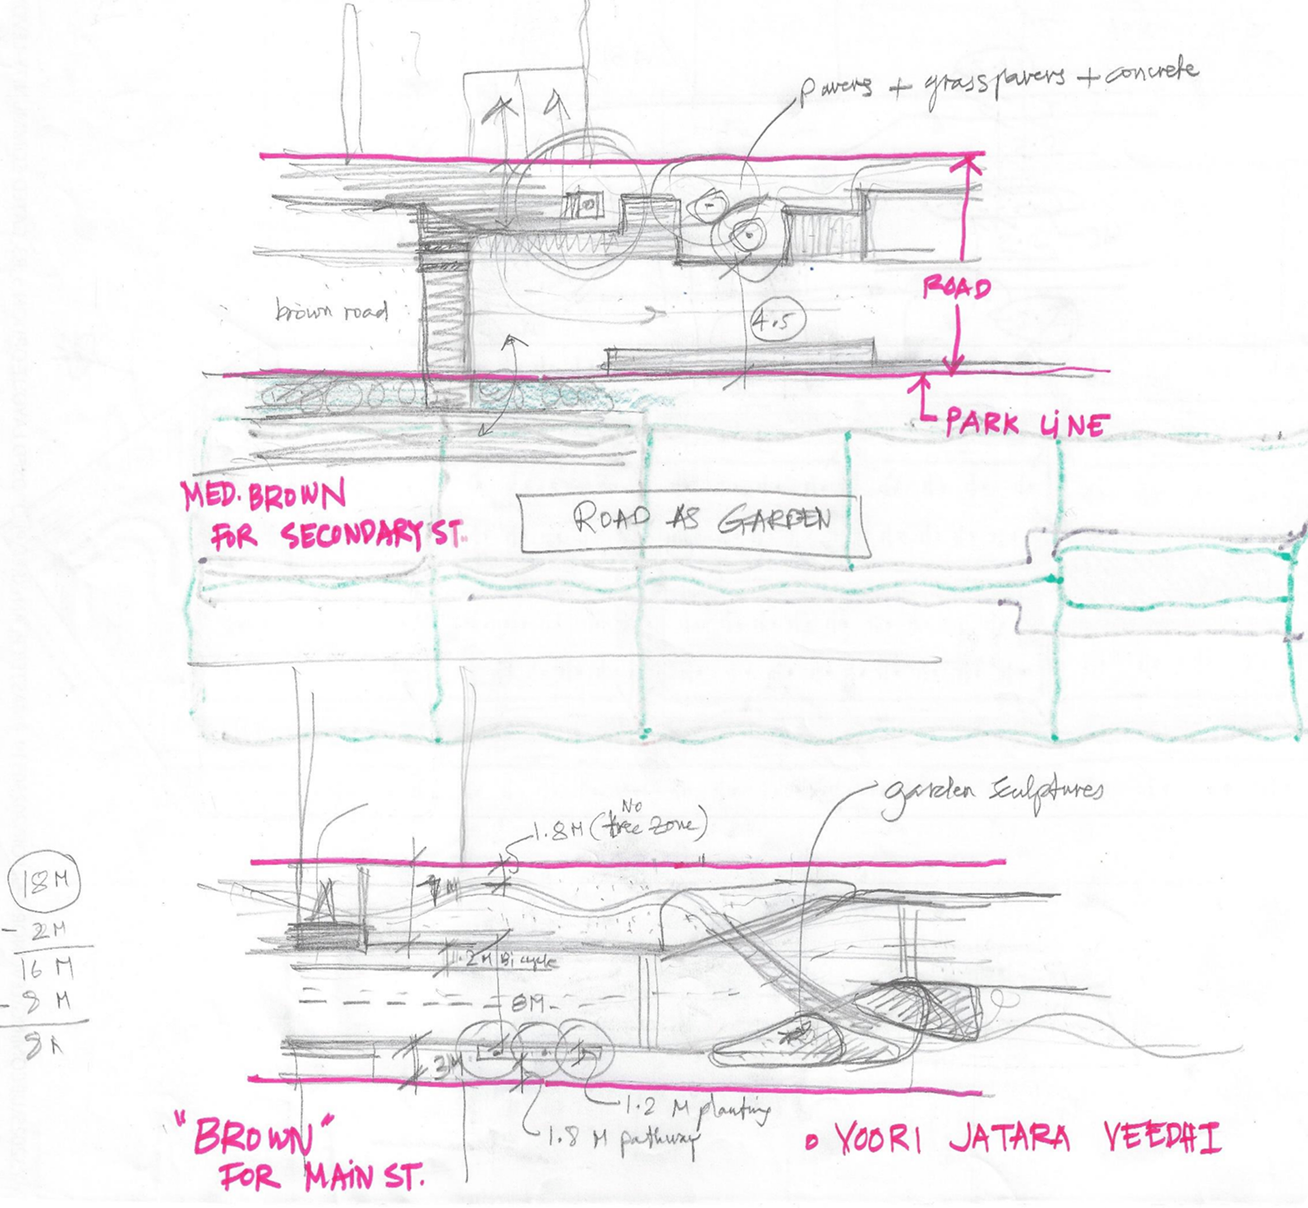 pavers + grasspavers + concrete
ROAD
brown road
4.5
PARK LINE
MED. BROWN
FOR SECONDARY ST.
ROAD AS GARDEN
garden sculptures
NO
1.8M (tree zone)
18M
- 2M
16 M
- 8 M
8
.2M Bicycle
8M
3M
1.2 M planting
1.8 M pathway
"BROWN"
FOR MAIN ST.
YOORI JATARA VEEDHI